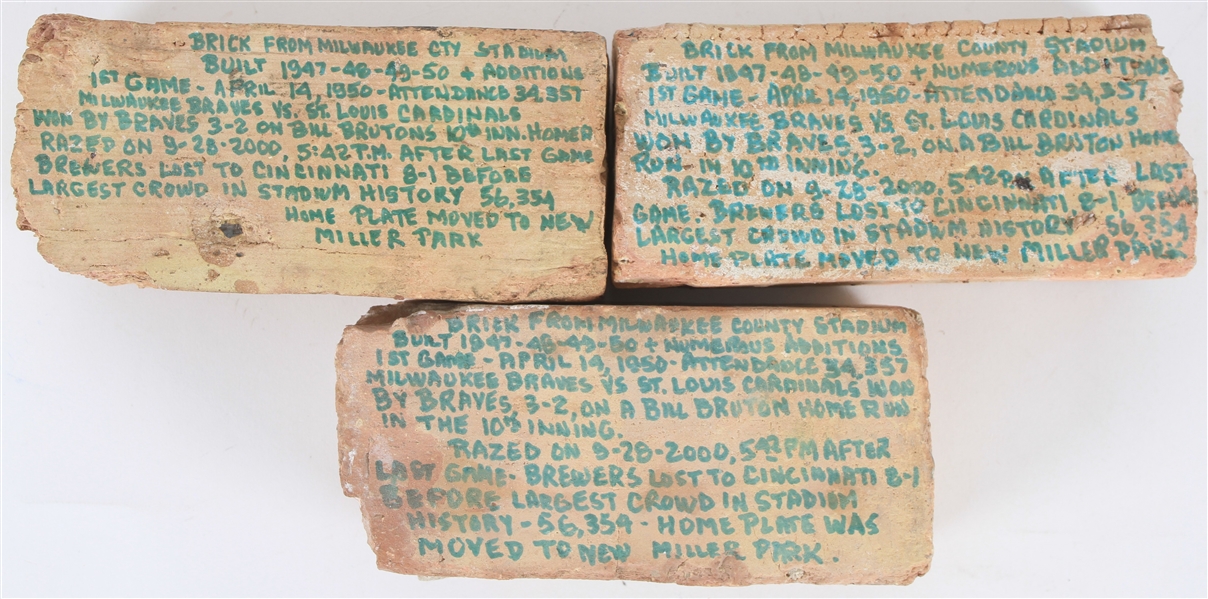 BRICK FROM MILWAUKEE CTY STADIUM
BUILT 1947-48-49-50 + ADDITIONS
1ST GAME - APRIL 14, 1950 - ATTENDANCE 34,357
MILWAUKEE BRAVES VS. ST. LOUIS CARDINALS
WON BY BRAVES 3-2 ON BILL BRUTONS 10th INN. HOMER
RAZED ON 9-28-2000, 5:42 P.M. AFTER LAST GAME
BREWERS LOST TO CINCINNATI 8-1 BEFORE
LARGEST CROWD IN STADIUM HISTORY 56,354
HOME PLATE MOVED TO NEW
MILLER PARK
BRICK FROM MILWAUKEE COUNTY STADIUM
BUILT 1947-48-49-50 + NUMEROUS ADDITONS
1ST GAME - APRIL 14, 1950 - ATTENDANCE 34,357
MILWAUKEE BRAVES VS. ST. LOUIS CARDINALS
WON BY BRAVES, 3-2, ON A BILL BRUTON HOME
RUN IN 10TH INNING.
RAZED ON 9-28-2000, 5:42 AFTER LAST
GAME. BREWERS LOST TO CINCINNATI 8-1. BEFORE
LARGEST CROWD IN STADIUM HISTORY 56,354
HOME PLATE MOVED TO NEW MILLER PARK
BRICK FROM MILWAUKEE COUNTY STADIUM
BUILT 1947-48-49-50 + NUMEROUS ADDITIONS
1ST GAME - APRIL 14, 1950 - ATTENDANCE 34,357
MILWAUKEE BRAVES VS ST. LOUIS CARDINALS WON
BY BRAVES, 3-2, ON A BILL BRUTON HOME RUN
IN THE 10th INNING.
RAZED ON 9-28-2000, 5:42 PM AFTER
LAST GAME - BREWERS LOST TO CINCINNATI 8-1
BEFORE LARGEST CROWD IN STADIUM
HISTORY - 56,354 - HOME PLATE WAS
MOVED TO NEW MILLER PARK.